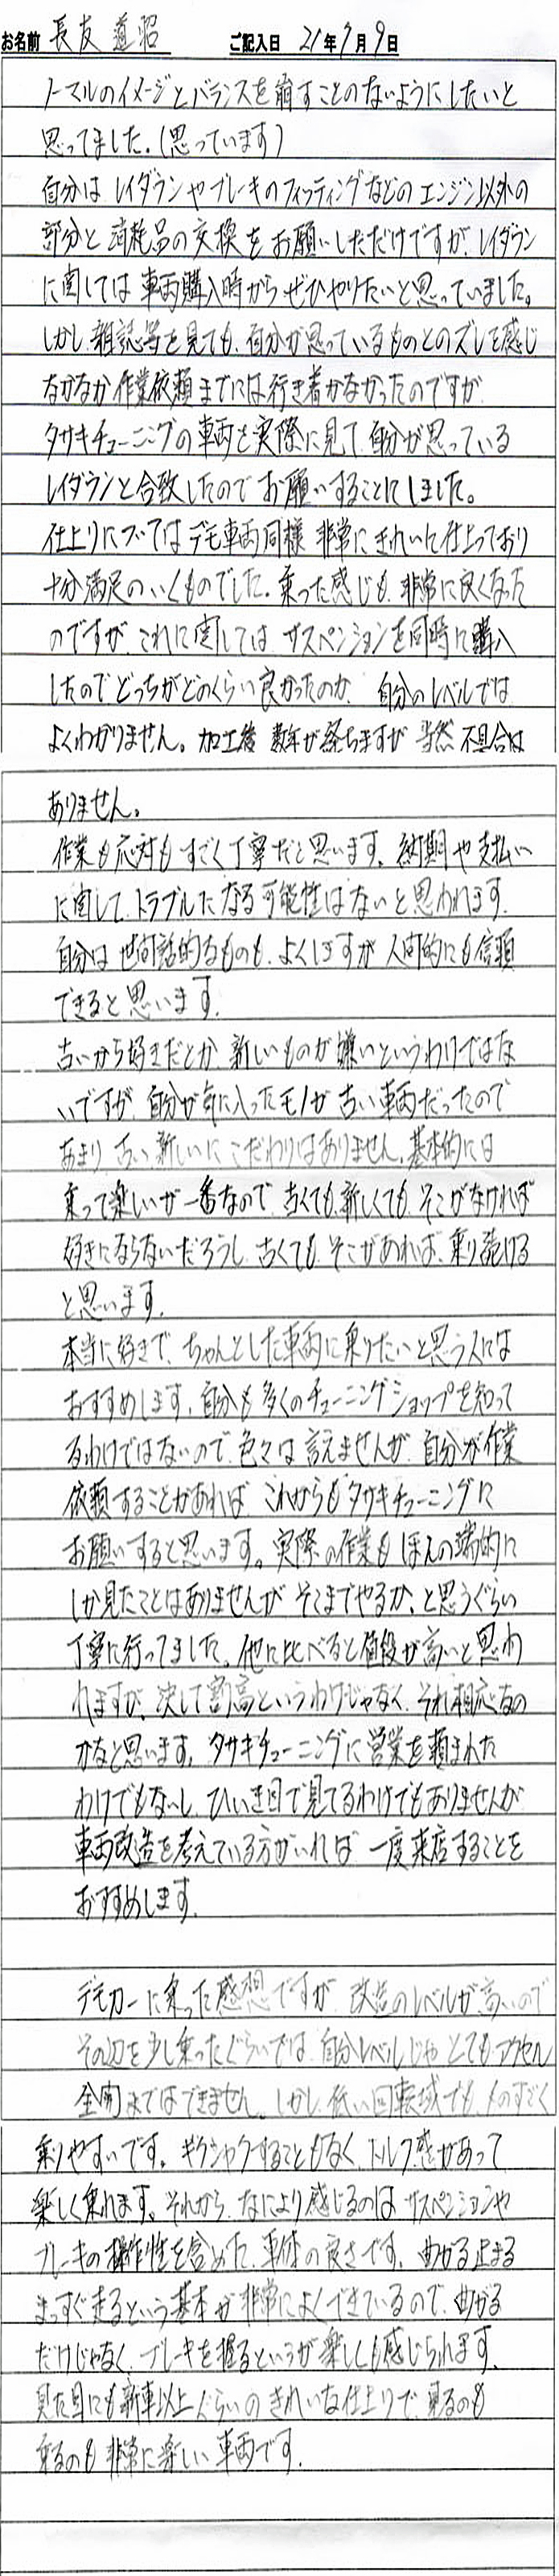 お名前 長友 道昭 ご記入日 21年7月9日
ノーマルのイメージとバランスを崩すことのないようにしたいと
思ってました。(思っています)
自分は レイダウンやブレーキのフィッティングなどの エンジン以外の
部分と 消耗品の交換を お願いしただけですが、レイダウン
に関しては 車両購入時から ぜひやりたいと思っていました。
しかし、雑誌等を見ても、自分が思っているものとのズレを感じ
なかなか 作業依頼までには行き着かなかったのですが、
タサキチューニングの車両を実際に見て、自分が思っている
レイダウンと合致したので お願いすることにしました。
仕上りについては デモ車両同様 非常にきれいに仕上っており
十分満足のいくものでした。乗った感じも、非常に良くなった
のですが、これに関しては サスペンションを同時に購入
したので どっちがどのくらい良かったのか、自分のレベルでは
よくわかりません。加工後 数年が経ちますが 当然 不具合は
ありません。
作業も応対も すごく丁寧だと思います。納期や支払い
に関して、トラブルになる可能性はないと思われます。
自分は 世間話的なものも、よくしますが 人間的にも信頼
できると思います。
古いから好きだとか、新しいものが嫌いというわけではな
いですが、自分が気に入ったモノが 古い車両だったので
あまり 古い 新しいに こだわりはありません。基本的には
乗って楽しいが一番なので、古くても、新しくても、そこがなければ
好きにならないだろうし、古くても、そこがあれば、乗り続ける
と思います。
本当に好きで、ちゃんとした車両に乗りたいと思う人には
おすすめします。自分も多くのチューニングショップを知って
るわけではないので、色々は言えませんが、自分が作業
依頼することがあれば これからもタサキチューニングに
お願いすると思います。実際の作業も ほんの端的に
しか見たことはありませんが そこまでやるか、と思うぐらい
丁寧に行ってました。他に比べると値段が高いと思わ
れますが、決して割高というわけじゃなく、それ相応なの
かなと思います。タサキチューニングに営業を頼まれた
わけでもないし、ひいき目で見てるわけでもありませんが
車両改造を考えている方がいれば 一度来店することを
おすすめします。
デモカーに乗った感想ですが、改造のレベルが高いので
その辺を少し乗ったぐらいでは、自分レベルじゃ とても アクセル
全開まではできません。しかし、低い回転域でも、ものすごく
乗りやすいです。ギクシャクすることもなく、トルク感があって
楽しく乗れます。それから、なにより感じるのは サスペンションや
ブレーキの操作性を含めた、車体の良さです。曲がる 止まる
まっすぐ走るという基本が 非常によくできているので、曲がる
だけじゃなく、ブレーキを握るというが楽しくも感じられます。
見た目にも新車以上ぐらいの きれいな仕上りで、見るのも
乗るのも 非常に楽しい車両です。